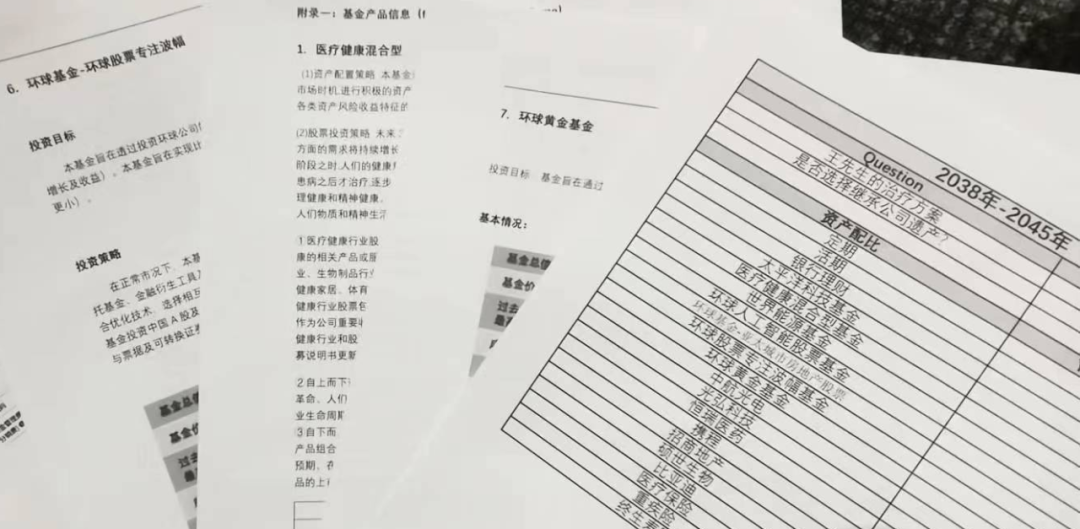 6. 环球基金-环球股票专注波幅
投资目标
本基金旨在透过投资环球公司
增长及收益)。本基金旨在实现比
更小)。
投资策略
在正常市况下，本基
托基金、金融衍生工具
合优化技术，选择相互
基金投资中国A股及
与票据及可转换证券
基金总值
基金价
过去
附录一：基金产品信息
1. 医疗健康混合型
(1)资产配置策略 本基金
市场时机,进行积极的资产
各类资产风险收益特征的
(2)股票投资策略 未来
方面的需求将持续增长
阶段之时,人们的健康
患病之后才治疗,逐步
理健康和精神健康。
人们物质和精神生活
1 医疗健康行业股
康的相关产品或服
业、生物制品行业
健康家居、体育
健康行业股票包
作为公司重要
健康行业和股
募说明书更新
2 自上而下
革命、人们
业生命周期
3 自下而
产品组合
预期、在
品的上
7. 环球黄金基金
投资目标 基金旨在透过
基本情况:
基金总值
基金价
过去
最
2038年-2045年
Question
王先生的治疗方案
是否选择继承公司遗产?
资产配比
定期
活期
银行理财
太平洋科技基金
医疗健康混合型基金
世界能源基金
环球人工智能股票基金
环球基金-亚太城市房地产股票
环球股票专注波幅基金
环球黄金基金
中航光电
光弘科技
恒瑞医药
携程
招商地产
硕世生物
比亚迪
医疗保险
重疾险
终生寿